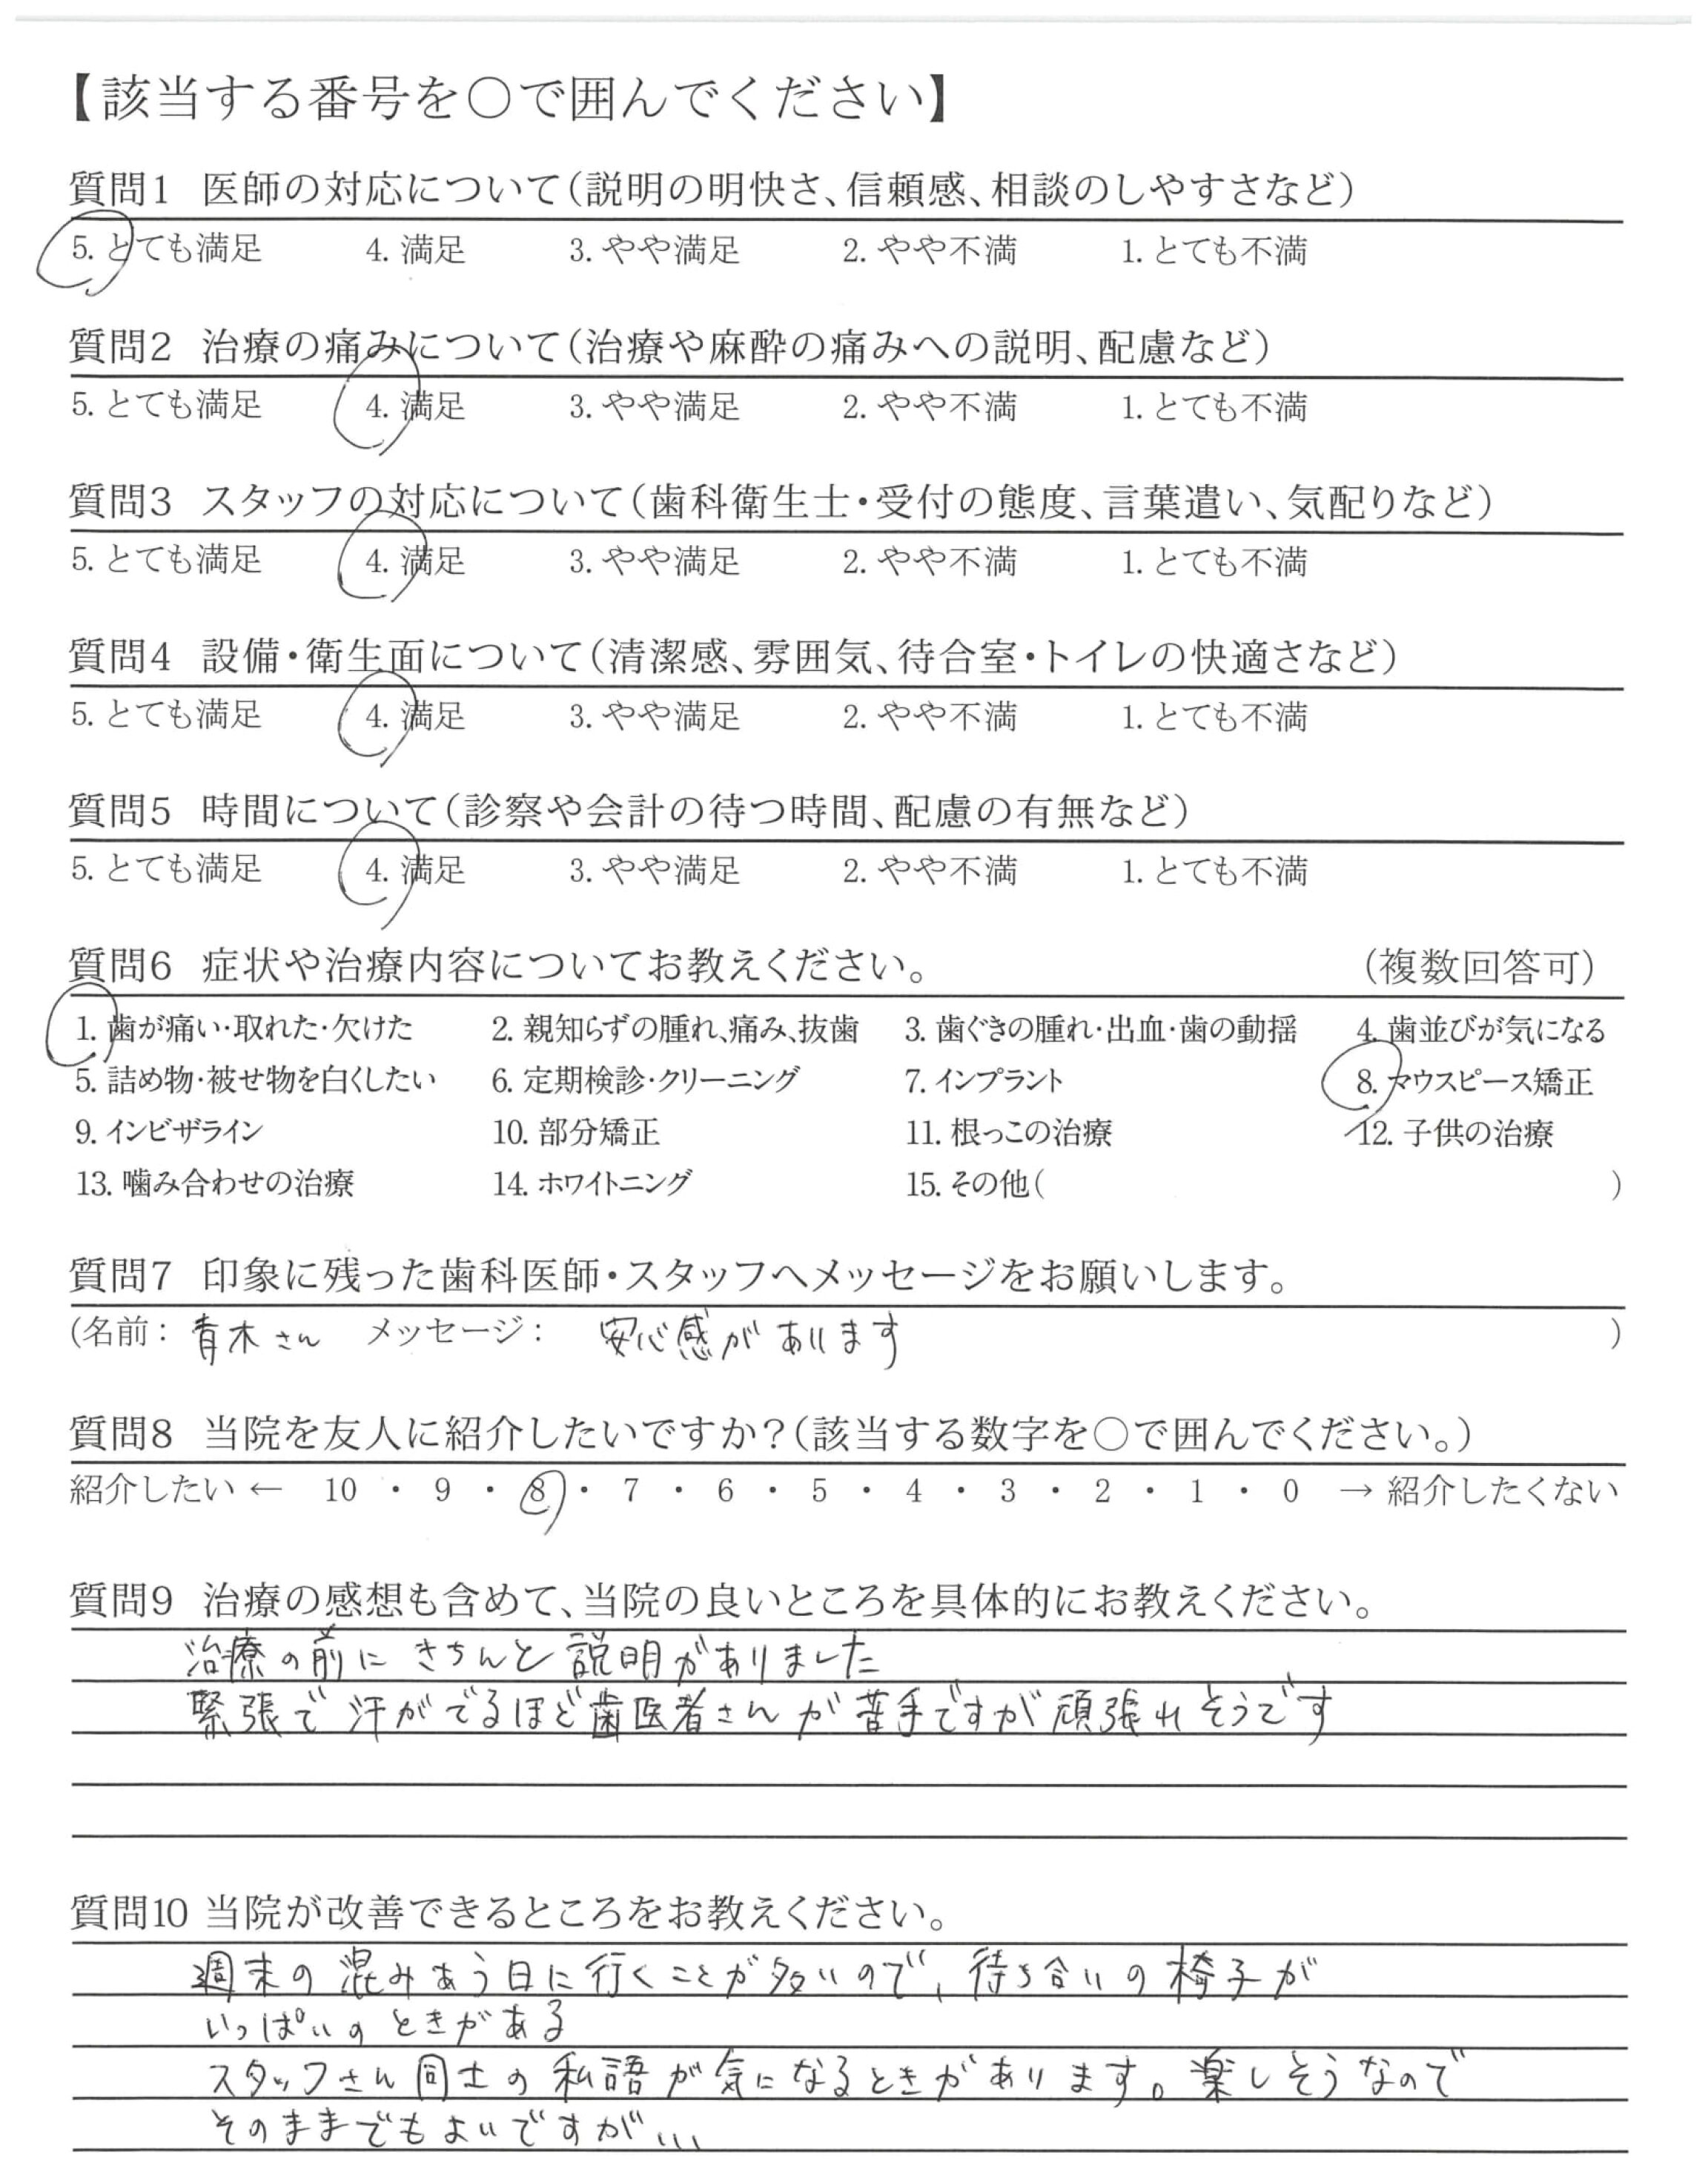 【該当する番号を○で囲んでください】
質問1 医師の対応について(説明の明快さ、信頼感、相談のしやすさなど)
5. とても満足 4. 満足 3. やや満足 2. やや不満 1. とても不満
質問2 治療の痛みについて(治療や麻酔の痛みへの説明、配慮など)
5. とても満足 4. 満足 3. やや満足 2. やや不満 1. とても不満
質問3 スタッフの対応について(歯科衛生士・受付の態度、言葉遣い、気配りなど)
5. とても満足 4. 満足 3. やや満足 2. やや不満 1. とても不満
質問4 設備・衛生面について(清潔感、雰囲気、待合室・トイレの快適さなど)
5. とても満足 4. 満足 3. やや満足 2. やや不満 1. とても不満
質問5 時間について(診察や会計の待つ時間、配慮の有無など)
5. とても満足 4. 満足 3. やや満足 2. やや不満 1. とても不満
質問6 症状や治療内容についてお教えください。 (複数回答可)
1. 歯が痛い・取れた・欠けた 2. 親知らずの腫れ、痛み、抜歯 3. 歯ぐきの腫れ・出血・歯の動揺 4. 歯並びが気になる
5. 詰め物・被せ物を白くしたい 6. 定期検診・クリーニング 7. インプラント 8. マウスピース矯正
9. インビザライン 10. 部分矯正 11. 根っこの治療 12. 子供の治療
13. 噛み合わせの治療 14. ホワイトニング 15. その他( )
質問7 印象に残った歯科医師・スタッフへメッセージをお願いします。
(名前: 青木さん メッセージ: 安心感があります )
質問8 当院を友人に紹介したいですか?(該当する数字を○で囲んでください。)
紹介したい ← 10 ・ 9 ・ 8 ・ 7 ・ 6 ・ 5 ・ 4 ・ 3 ・ 2 ・ 1 ・ 0 → 紹介したくない
質問9 治療の感想も含めて、当院の良いところを具体的にお教えください。
治療の前に きちんと 説明がありました
緊張で 汗がでるほど歯医者さんが 苦手ですが 頑張れそうです
質問10 当院が改善できるところをお教えください。
週末の 混みあう日に行くことが多いので、待ち合いの 椅子が
いっぱいのときがある
スタッフさん同士の 私語が気になるときがあります。楽しそうなので
そのままでもよいですが...